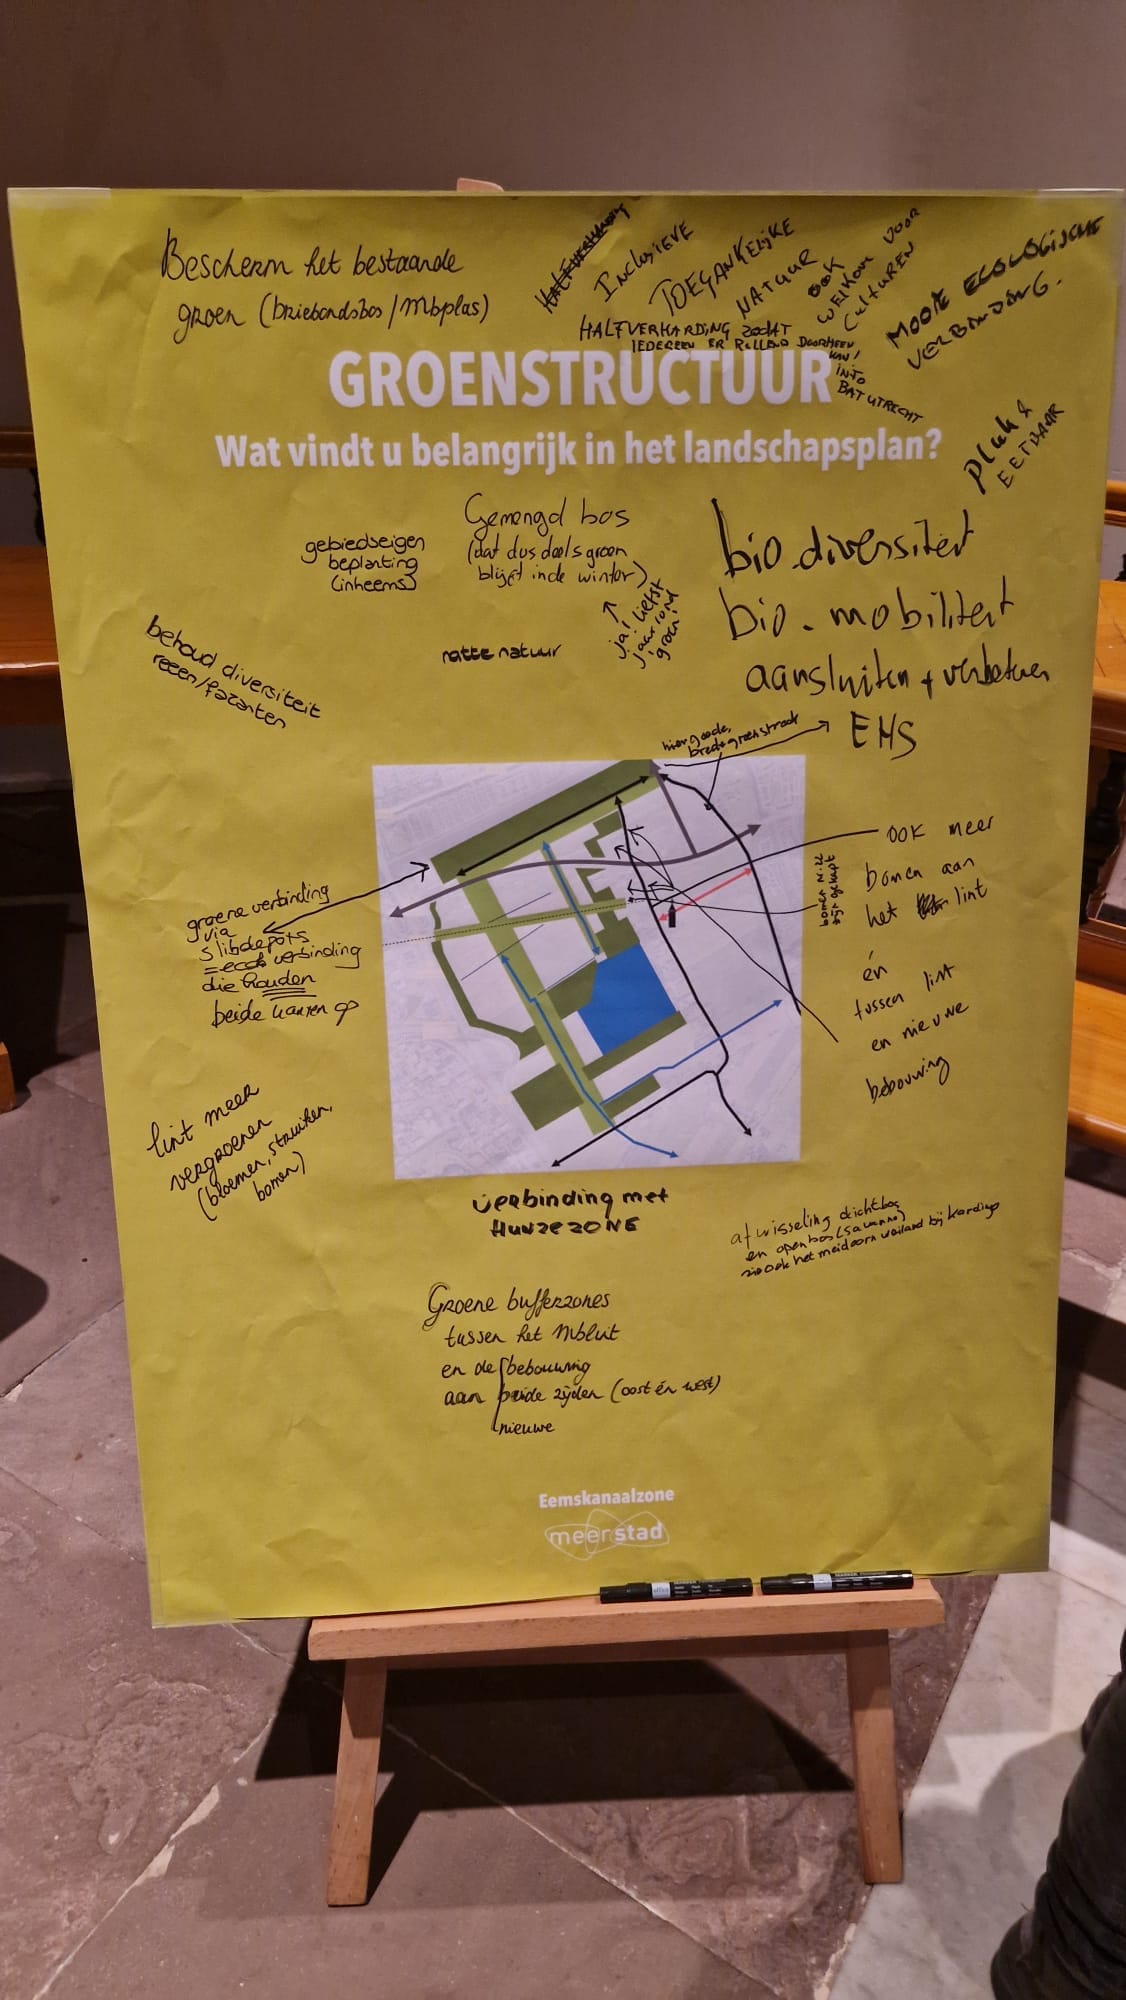 Bescherm het bestaande
groen (Driebondsbos/Mbplas)
HALFVERHARDING
INCLUSIEVE
TOEGANKELIJKE
NATUUR
OOK
WELKOM VOOR
CULTUREN
MOOIE ECOLOGISCHE
VERBINDING.
HALFVERHARDING ZODAT
IEDEREEN ER ROLLEND DOORHEEN
KAN!
INFO
BAT UTRECHT
GROENSTRUCTUUR
Wat vindt u belangrijk in het landschapsplan?
Pluk &
EETBAAR
Gemengd bos
(dat dus deels groen
blijft in de winter)
gebiedseigen
beplanting
(inheems)
ja! liefst
jaarrond
groen!
natte natuur
bio.diversiteit
bio.mobiliteit
aansluiten + verbeteren
EHS
behoud diversiteit
reeën/fazanten
hier goede,
brede groenstrook
groene verbinding
via
slibdepots
= eco verbinding
die houden
beide kanten op
ook meer
bomen aan
het lint
én
tussen lint
en nieuwe
bebouwing
bomen
zijn gekapt
lint meer
vergroenen
(bloemen, struiken,
bomen)
verbinding met
HUNZEZONE
afwisseling dicht bos
en open bos (savanne)
zie ook het meidoorn weiland bij kardinge
Groene bufferzones
tussen het Mblint
en de bebouwing
aan beide zijden (oost én west)
nieuwe
Eemskanaalzone
meerstad